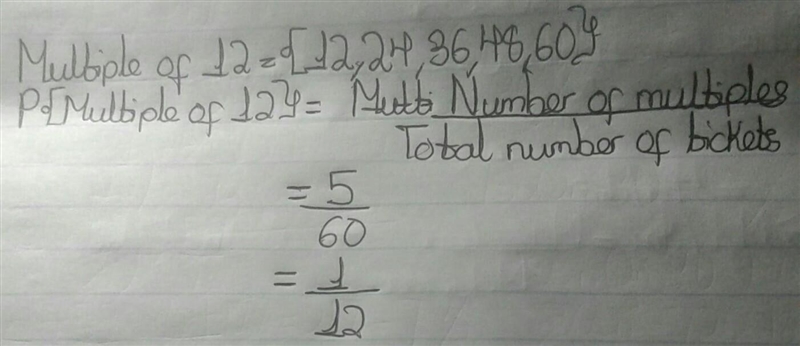 Multiple of 12 = {12, 24, 36, 48, 60}
P{Multiple of 12} = Number of multiples
Total number of tickets
= 5
60
= 1
12